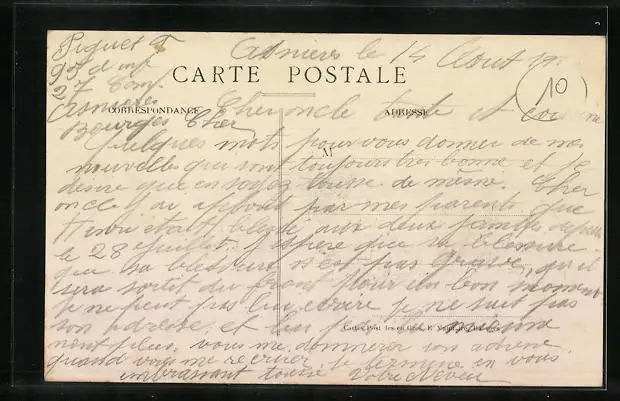 Piquet F
95 d inf
27 Comp
Asnières
Bourges Cher
Asnieres le 14 Aout 19
(10)
CARTE POSTALE
CORRESPONDANCE
ADRESSE
M
Cher oncle tante et cousine
Quelques mots pour vous donner de mes
nouvelles qui sont toujours tres bonne et je
desire que en soyez tousse de même. Cher
oncle j'ai appout par mes parents que
était blessé aux deux jambes depuis
le 28 Juillet. J'espere que sa blessure
que sa blessure n'est pas grave, qu'il
sera sortit du front pour un bon moment
Je ne peut pas lui ecrire je ne sait pas
son adresse, et lui
non plus, vous me donnerer son adresse
quand vous me recrirer. Je termine en vous
embrassant tousse Votre Neveu